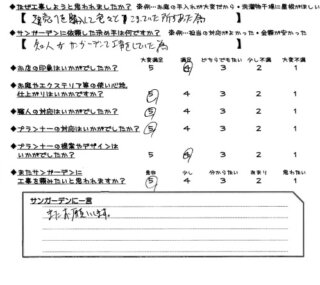 ◆なぜ工事しようと思われましたか? 参考例…お庭の手入れが大変だから・洗濯物干場に屋根がほしい
を購入して
◆サンガーデンに依頼した決め手は何ですか? 参考例…担当の対応がよかった・金額が安かった
知人がサンガーデンで工事をしていた為
大変満足 満足 どちらでもない 少し不満 大変不満
◆お店の印象はいかがでしたか? 5 4 3 2 1
◆お庭やエクステリア等の使い心地、
仕上がりはいかがですか? 5 4 3 2 1
◆職人の対応はいかがでしたか? 5 4 3 2 1
◆プランナーの対応はいかがでしたか? 5 4 3 2 1
◆プランナーの提案やデザインは
いかがでしたか? 5 4 3 2 1
◆またサンガーデンに 少し 分からない あまり 思わない
工事を頼みたいと思われますか? 5 4 3 2 1
サンガーデンに一言
またお願いします。